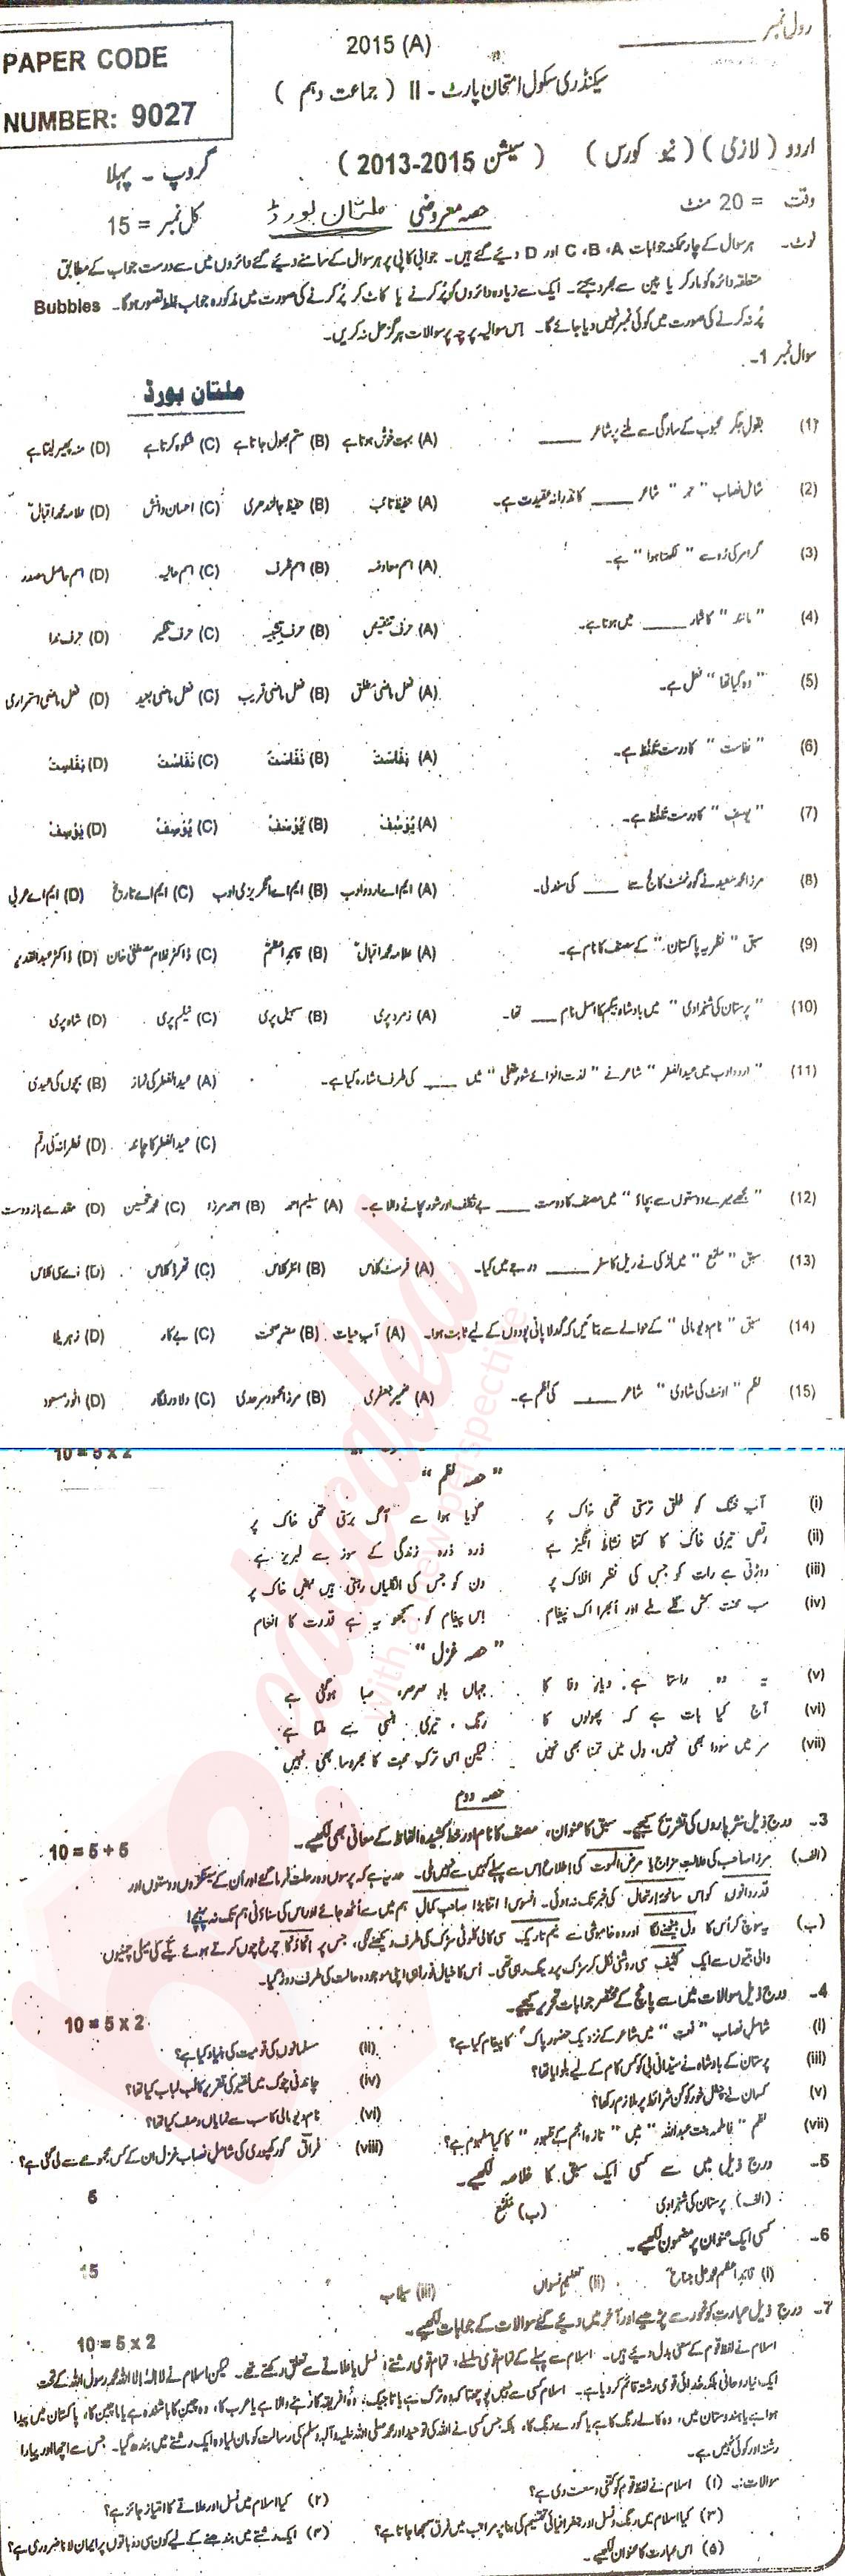 رول نمبر ____________
2015 (A)
PAPER CODE
NUMBER: 9027
سیکنڈری سکول امتحان پارٹ - II ( جماعت دہم )
اردو ( لازمی ) ( نیو کورس ) ( سیشن 2013-2015 )
گروپ - پہلا
وقت = 20 منٹ
حصہ معروضی ملتان بورڈ
کل نمبر = 15
نوٹ۔ ہر سوال کے چار ممکنہ جوابات A، B، C اور D دیئے گئے ہیں۔ جوابی کاپی پر ہر سوال کے سامنے دیئے گئے دائروں میں سے درست جواب کے مطابق
متعلقہ دائرہ کو مارکر یا پین سے بھر دیجئے۔ ایک سے زیادہ دائروں کو پُر کرنے یا کاٹ کر پُر کرنے کی صورت میں مذکورہ جواب غلط تصور ہوگا۔ Bubbles
پُر نہ کرنے کی صورت میں کوئی نمبر نہیں دیا جائے گا۔ اِس سوالیہ پرچہ پر سوالات ہرگز حل نہ کریں۔
سوال نمبر 1۔
ملتان بورڈ
(1) بقول جگر محبوب کے سادگی سے ملنے پر شاعر ____ (A) بہت خوش ہوتا ہے (B) ستم بھول جاتا ہے (C) شکوہ کرتا ہے (D) منہ پھیر لیتا ہے
(2) شامل نصاب " حمد " شاعر ____ کا نذرانہ عقیدت ہے۔ (A) حفیظ تائب (B) حفیظ جالندھری (C) احسان دانش (D) علامہ محمد اقبال
(3) گرامر کی رُو سے " لکھتا ہوا " ہے۔ (A) اسم معاوضہ (B) اسم ظرف (C) اسم حالیہ (D) اسم حاصل مصدر
(4) " مانند " کا شمار ____ میں ہوتا ہے۔ (A) حرف تخصیص (B) حرف تشبیہ (C) حرف (D) حرف ندا
(5) " وہ گیا تھا " فعل ہے۔ (A) فعل ماضی مطلق (B) فعل ماضی قریب (C) فعل ماضی بعید (D) فعل ماضی استمراری
(6) " نفاست " کا درست تلفظ ہے۔ (A) (B) (C) (D)
(7) " یوسف " کا درست تلفظ ہے۔ (A) (B) (C) (D)
(8) مرزا محمد سعید نے گورنمنٹ کالج سے ____ کی سند لی۔ (A) ایم اے اردو ادب (B) ایم اے انگریزی ادب (C) ایم اے تاریخ (D) ایم اے عربی
(9) سبق " نظریہ پاکستان " کے مصنف کا نام ہے۔ (A) علامہ محمد اقبال (B) قائد اعظم (C) ڈاکٹر غلام مصطفیٰ خان (D) ڈاکٹر عبدالقدیر
(10) " پرستان کی شہزادی " میں بادشاہ بیگم کا اصل نام ____ تھا۔ (A) زمرد پری (B) سہیل پری (C) نیلم پری (D) شاہ پری
(11) " اردو ادب میں عید الفطر " شاعر نے " لذت افزائے شور طفلی " میں ____ کی طرف اشارہ کیا ہے۔ (A) عید الفطر کی نماز (B) بچوں کی عیدی
(C) عید الفطر کا چاند (D) فطرانہ کی رقم
(12) " مجھے میرے دوستوں سے بچاؤ " میں مصنف کا دوست ____ بے تکلف اور شور مچانے والا ہے۔ (A) سلیم احمد (B) احمد مرزا (C) محمد تحسین (D) مقدمے باز دوست
(13) سبق " ملمع " میں لڑکی نے ریل کا سفر ____ درجے میں کیا۔ (A) فرسٹ کلاس (B) انٹر کلاس (C) تھرڈ کلاس (D) اے سی کلاس
(14) سبق " نام دیو مالی " کے حوالے سے بتائیں کہ گدلا پانی پودوں کے لیے ثابت ہوا۔ (A) آب حیات (B) مضر صحت (C) بے کار (D) زہریلا
(15) نظم " اونٹ کی شادی " شاعر ____ کی نظم ہے۔ (A) ضمیر جعفری (B) مرزا محمود سرحدی (C) دلاور فگار (D) انور مسعود
10 = 5 x 2
" حصہ نظم "
(i) آب خنک کو خلق ترستی تھی خاک پر گویا ہوا سے آگ برستی تھی خاک پر
(ii) رقص تیری خاک کا کتنا نشاط انگیز ہے ذرہ ذرہ زندگی کے سوز سے لبریز ہے
(iii) دوڑتی ہے رات کو جس کی نظر افلاک پر دن کو جس کی انگلیاں رہتی ہیں نبض خاک پر
(iv) سب محنت کش گلے ملے اور اُبھرا اک پیغام اس پیغام کو سمجھو یہ ہے قدرت کا انعام
" حصہ غزل "
(v) یہ وہ راستا ہے دیارِ وفا کا جہاں باد صرصر صبا ہوگئی ہے
(vi) آج کیا بات ہے کہ پھولوں کا رنگ تیری ہنسی سے ملتا ہے
(vii) سر میں سودا بھی نہیں، دل میں تمنا بھی نہیں لیکن اس ترک محبت کا بھروسا بھی نہیں
حصہ دوم
3۔ درج ذیل نثر پاروں کی تشریح کیجیے۔ سبق کا عنوان، مصنف کا نام اور خط کشیدہ الفاظ کے معانی بھی لکھیے۔ 10 = 5 + 5
(الف) مرزا صاحب کی علالتِ مزاج یا مرض الموت کی اطلاع اِس سے پہلے کہیں سے نہیں ملی۔ حد یہ ہے کہ پرسوں وہ رحلت فرما گئے اور اُن کے سینکڑوں دوستوں اور
قدردانوں کو اس سانحۂ ارتحال کی خبر تک نہ ہوئی۔ افسوس! اتنا بڑا صاحبِ کمال ہم میں سے اُٹھ جائے اور اس کی سناؤنی ہم تک نہ پہنچے!
(ب) یہ سوچ کر اُس کا دل بیٹھنے لگا اور وہ خاموشی سے نیم تاریک سی کالی کلوٹی سڑک کی طرف دیکھنے لگی، جس پر اکا دکا چرخ چوں کرتے ہوئے یکے کی میلی چمنیوں
والی بتیوں سے ایک کثیف سی روشنی نکل کر سڑک پر رینگ رہی تھی۔ اُس کا خیال فوراً ہی اپنی موجودہ حالت کی طرف دوڑ گیا۔
4۔ درج ذیل سوالات میں سے پانچ کے مختصر جوابات تحریر کیجیے۔ 10 = 5 x 2
(i) شامل نصاب " نعت " میں شاعر کے نزدیک حضور پاک کا پیغام کیا ہے؟ (ii) مسلمانوں کی قومیت کی بنیاد کیا ہے؟
(iii) پرستان کے بادشاہ نے سیدانی بی کو کس کام کے لیے بلوایا تھا؟ (iv) چاندنی چوک میں فقیر کی تقریر کا لب لباب کیا تھا؟
(v) کسان نے چغل خور کو کن شرائط پر ملازم رکھا؟ (vi) نام دیو مالی کا سب سے نمایاں وصف کیا تھا؟
(vii) نظم " فاطمہ بنت عبداللہ " میں " تازہ انجم کے ظہور " کا کیا مفہوم ہے؟ (viii) فراق گورکھپوری کی شامل نصاب غزل ان کے کس مجموعے سے لی گئی ہے؟
5۔ درج ذیل میں سے کسی ایک سبق کا خلاصہ لکھیے۔ 5
(الف) پرستان کی شہزادی (ب) ملمع
6۔ کسی ایک عنوان پر مضمون لکھیے۔ 15
(i) قائد اعظم محمد علی جناح (ii) تعلیم نسواں (iii) سیلاب
7۔ درج ذیل عبارت کو غور سے پڑھیے اور آخر میں دیئے گئے سوالات کے جوابات لکھیے۔ 10 = 5 x 2
اسلام نے لفظ قوم کے معنی بدل دیئے ہیں۔ اسلام سے پہلے کے تمام قومی سلسلے، تمام قومی رشتے، نسل یا علاقے سے تعلق رکھتے تھے۔ لیکن اسلام نے لا الہ الا اللہ محمد رسول اللہ کے تحت
ایک نیا روحانی بلکہ خدائی قومی رشتہ قائم کر دیا ہے۔ اسلام کسی سے نہیں پوچھتا کہ وہ ترک ہے یا تاجیک، وہ افریقہ کا رہنے والا ہے یا عرب کا، وہ چین کا باشندہ ہے یا ماچین کا، پاکستان میں پیدا
ہوا ہے یا ہندوستان میں، وہ کالے رنگ کا ہے یا گورے رنگ کا، بلکہ جس کسی نے اللہ کی توحید اور محمد صلی اللہ علیہ وآلہ وسلم کی رسالت کو مان لیا وہ ایک رشتے میں بندھ گیا۔ جس سے اچھا اور پیارا
رشتہ اور کوئی نہیں ہے۔
سوالات:۔ (۱) اسلام نے لفظ قوم کو کتنی وسعت دی ہے؟ (۲) کیا اسلام میں نسل اور علاقے کا امتیاز جائز ہے؟
(۳) کیا اسلام میں رنگ و نسل اور جغرافیائی تقسیم کی بنا پر مراتب میں فرق سمجھا جاتا ہے؟ (۴) ایک رشتے میں بندھنے کے لیے کون سی دو باتوں پر ایمان لانا ضروری ہے؟
(۵) اس عبارت کا عنوان لکھیے۔
educated
with a new perspective